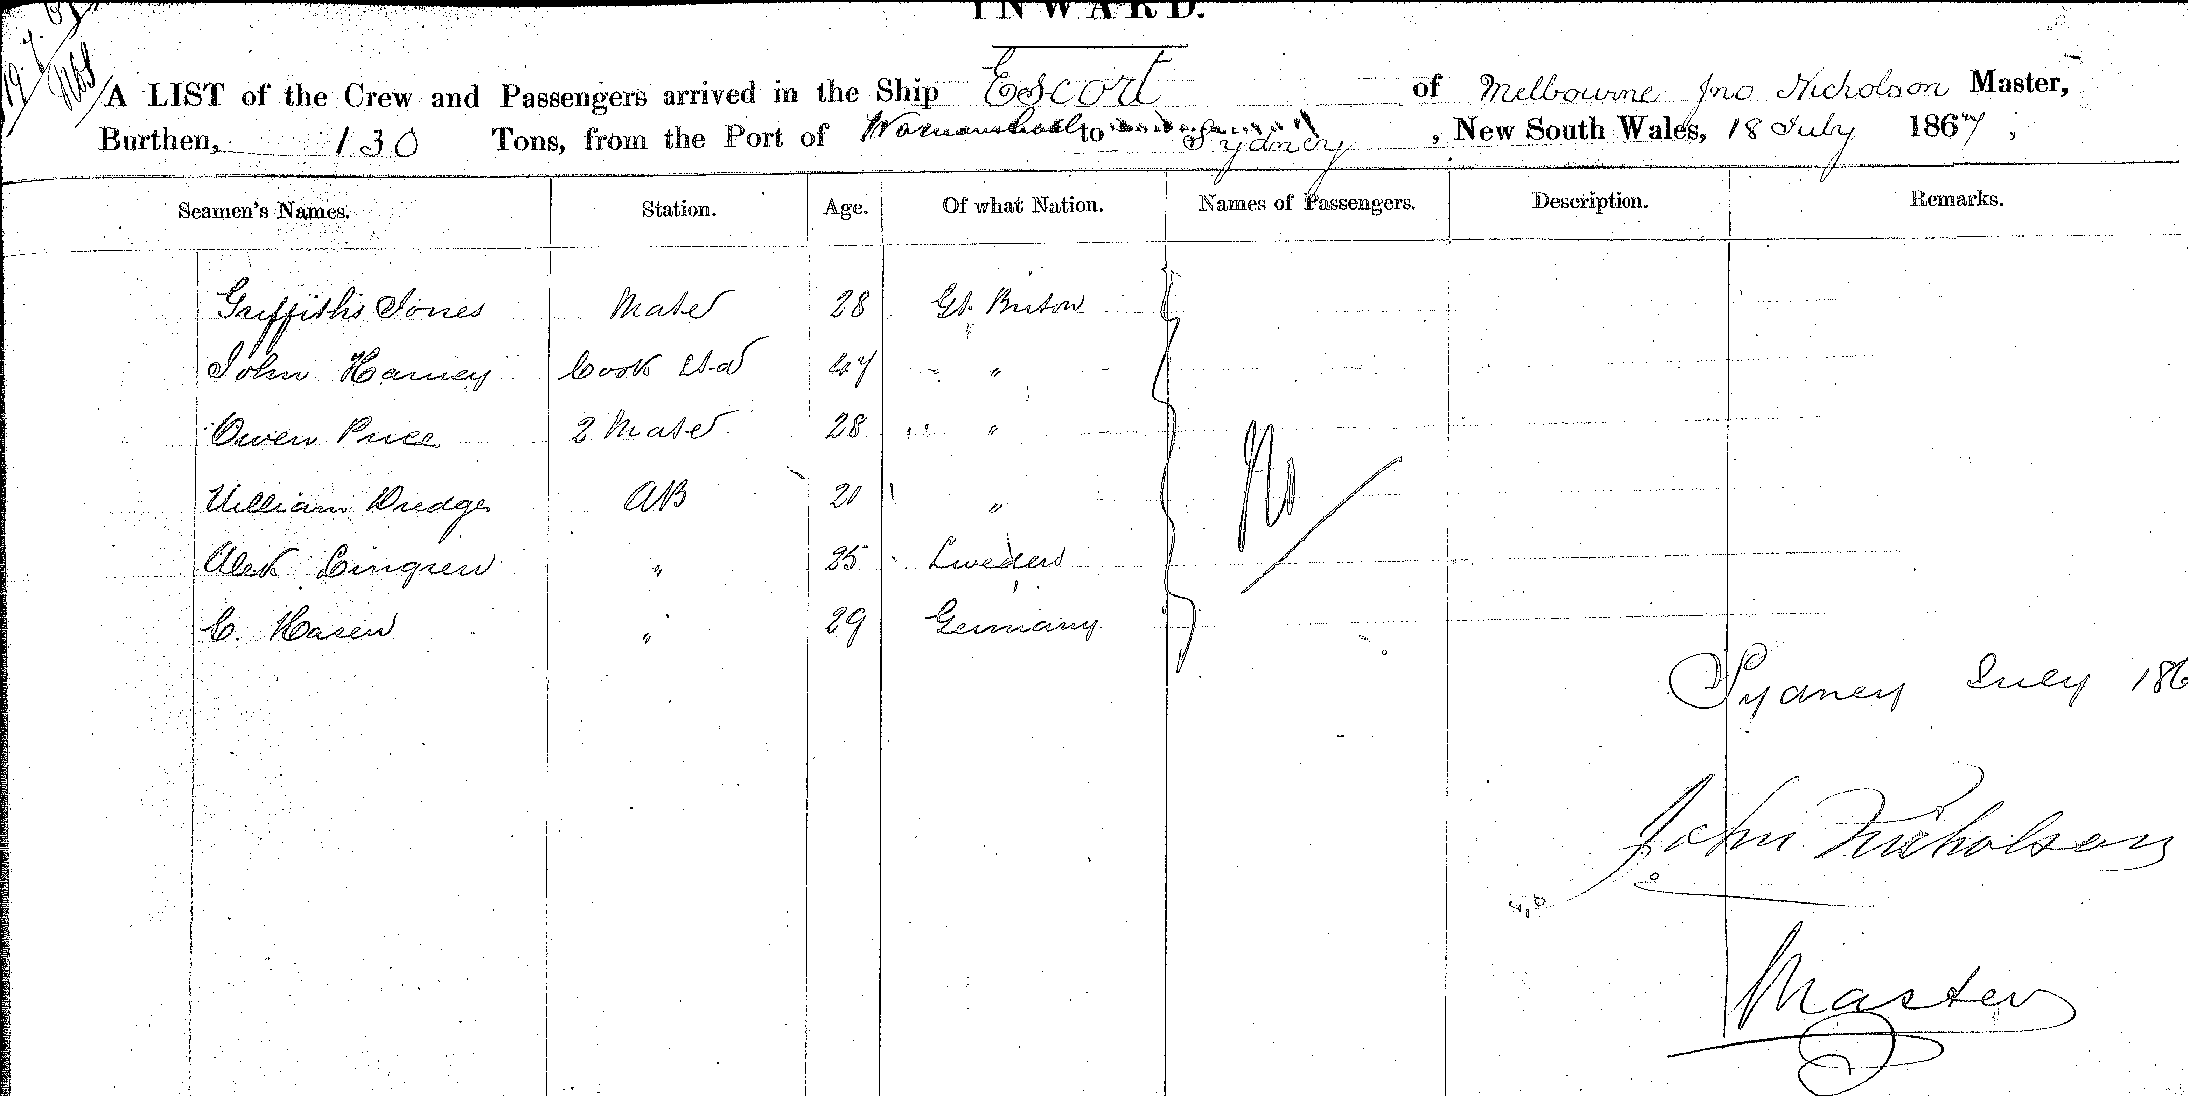 INWARD.
A LIST of the Crew and Passengers arrived in the Ship Escort of Melbourne Jno Nicholson Master,
Burthen, 130 Tons, from the Port of to Sydney, New South Wales, 18 July 1867;
Seamen's Names. Station. Age. Of what Nation. Names of Passengers. Description. Remarks.
Griffiths Jones Mate 28 Gt. Briton
John Harney Cook 47 "
Owen Price 2 Mate 28 "
William Dredge AB 20 "
Alex Lingren " 25 Sweden
No
C. Hasen " 29 Germany
Sydney July 186
John Nicholson
Master